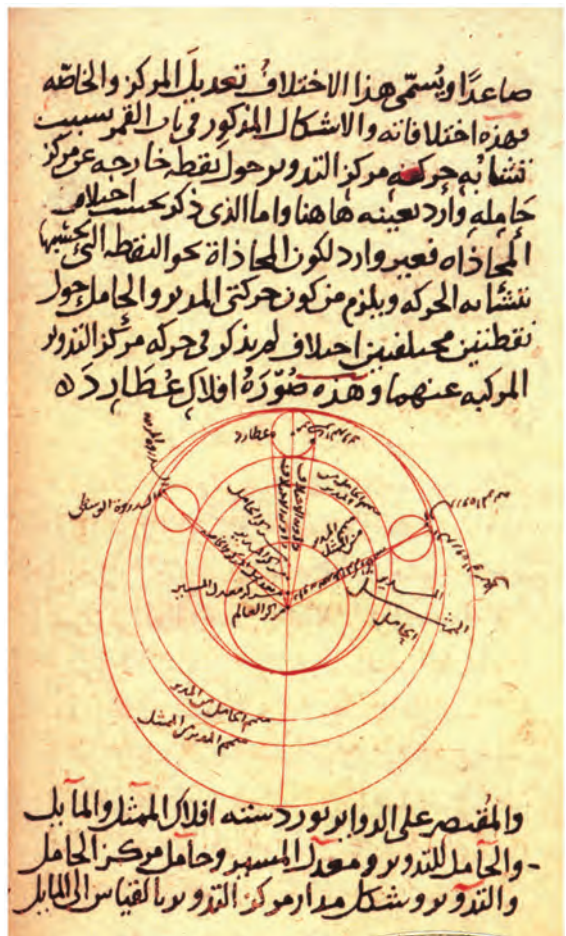 صاعدًا ويُسمّى هذا الاختلافُ تعديلَ المركز والخاصّه
فهذه اختلافاته والاشكال المذكور فى باب القمر بسبب
تشابه حركه مركز التدوير حول نقطه خارجه عن مركز
حامله وارد بعينه هاهنا واما الذى ذكر بحسب اختلاف
المحاذاه فغير وارد لكون المحاذاة نحو النقطه التى بحسبها
تتشابه الحركه ويلزم من كون حركتى المدير والحامل حول
نقطتين مختلفتين اختلاف لم يذكر فى حركه مركز التدوير
المركبه عنهما وهذه صُوّرَةُ افلاكِ عُطَارِد
عطارد
الذروة الوسطى
مركز الحامل
مركز المدير
مركز معدل المسير
مركز العالم
المدير
الممثل
الحامل
متمم الحامل من المدير
متمم المدير من الممثل
والمقتصر على الدواير يورد ستة افلاك الممثل والمايل
والحامل للتدوير ومعدل المسير وحامل مركز الحامل
والتدوير وشكل مدار مركز التدوير بالقياس الى المايل